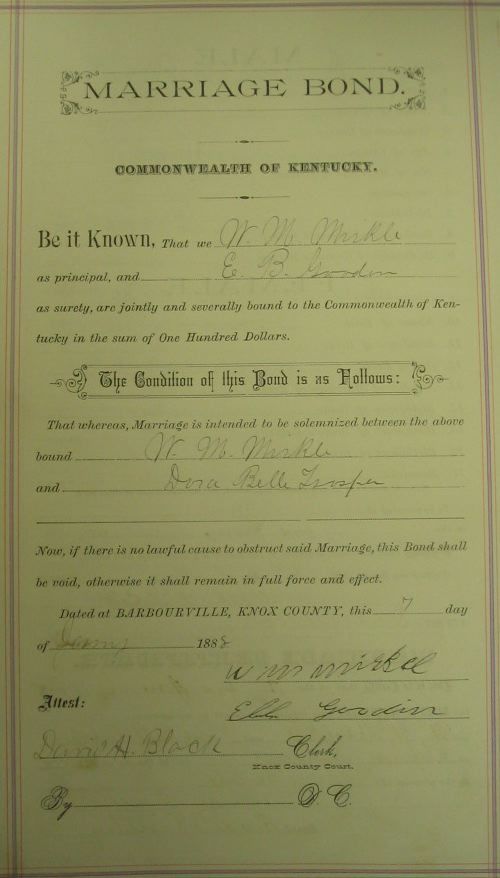 MARRIAGE BOND.
COMMONWEALTH OF KENTUCKY.
Be it Known, That we W. M. Mirkle
as principal, and E. B. Goodin
as surety, are jointly and severally bound to the Commonwealth of Ken-
tucky in the sum of One Hundred Dollars.
The Condition of this Bond is as Follows:
That whereas, Marriage is intended to be solemnized between the above
bound W. M. Mirkle
and Dora Belle Trosper
Now, if there is no lawful cause to obstruct said Marriage, this Bond shall
be void, otherwise it shall remain in full force and effect.
Dated at BARBOURVILLE, KNOX COUNTY, this 7 day
of 1888
W M Mirkel
Attest: Goodin
David H. Black Clerk,
Knox County Court.
By D. C.